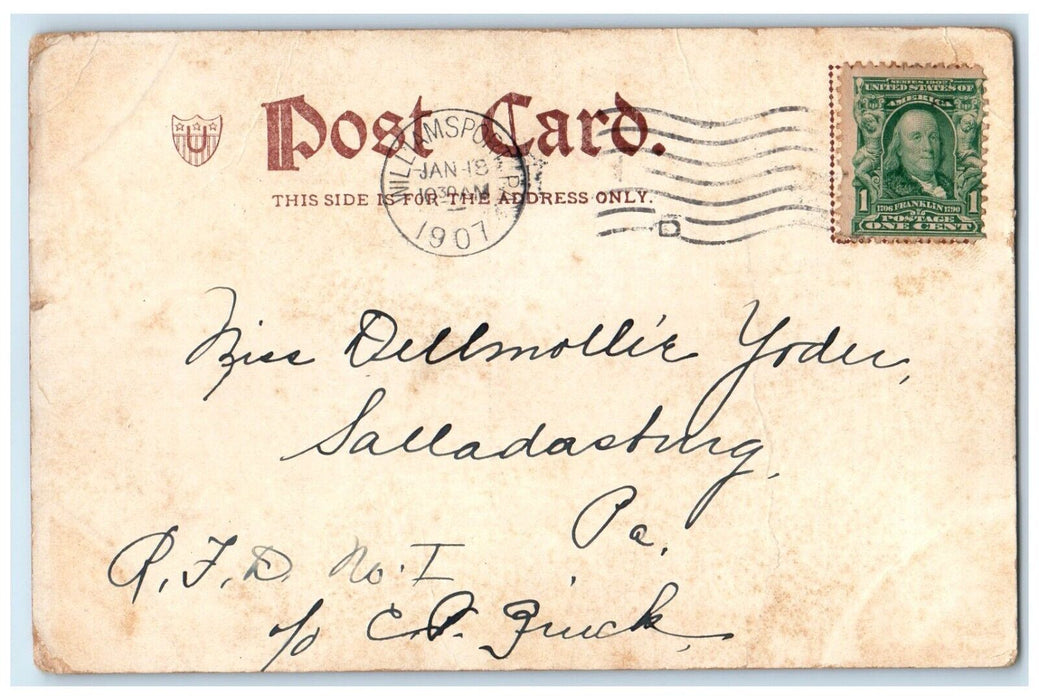 U
Post Card.
THIS SIDE IS FOR THE ADDRESS ONLY.
WILLIAMSPORT, PA.
JAN 18
1030 AM
1907
D
SERIES 1902
UNITED STATES OF
AMERICA
1 1706 FRANKLIN 1790 1
POSTAGE
ONE CENT
Miss Dellmollie Yoder,
Salladasburg,
Pa.
R. F. D. No. I
c/o C. P. Zinck.